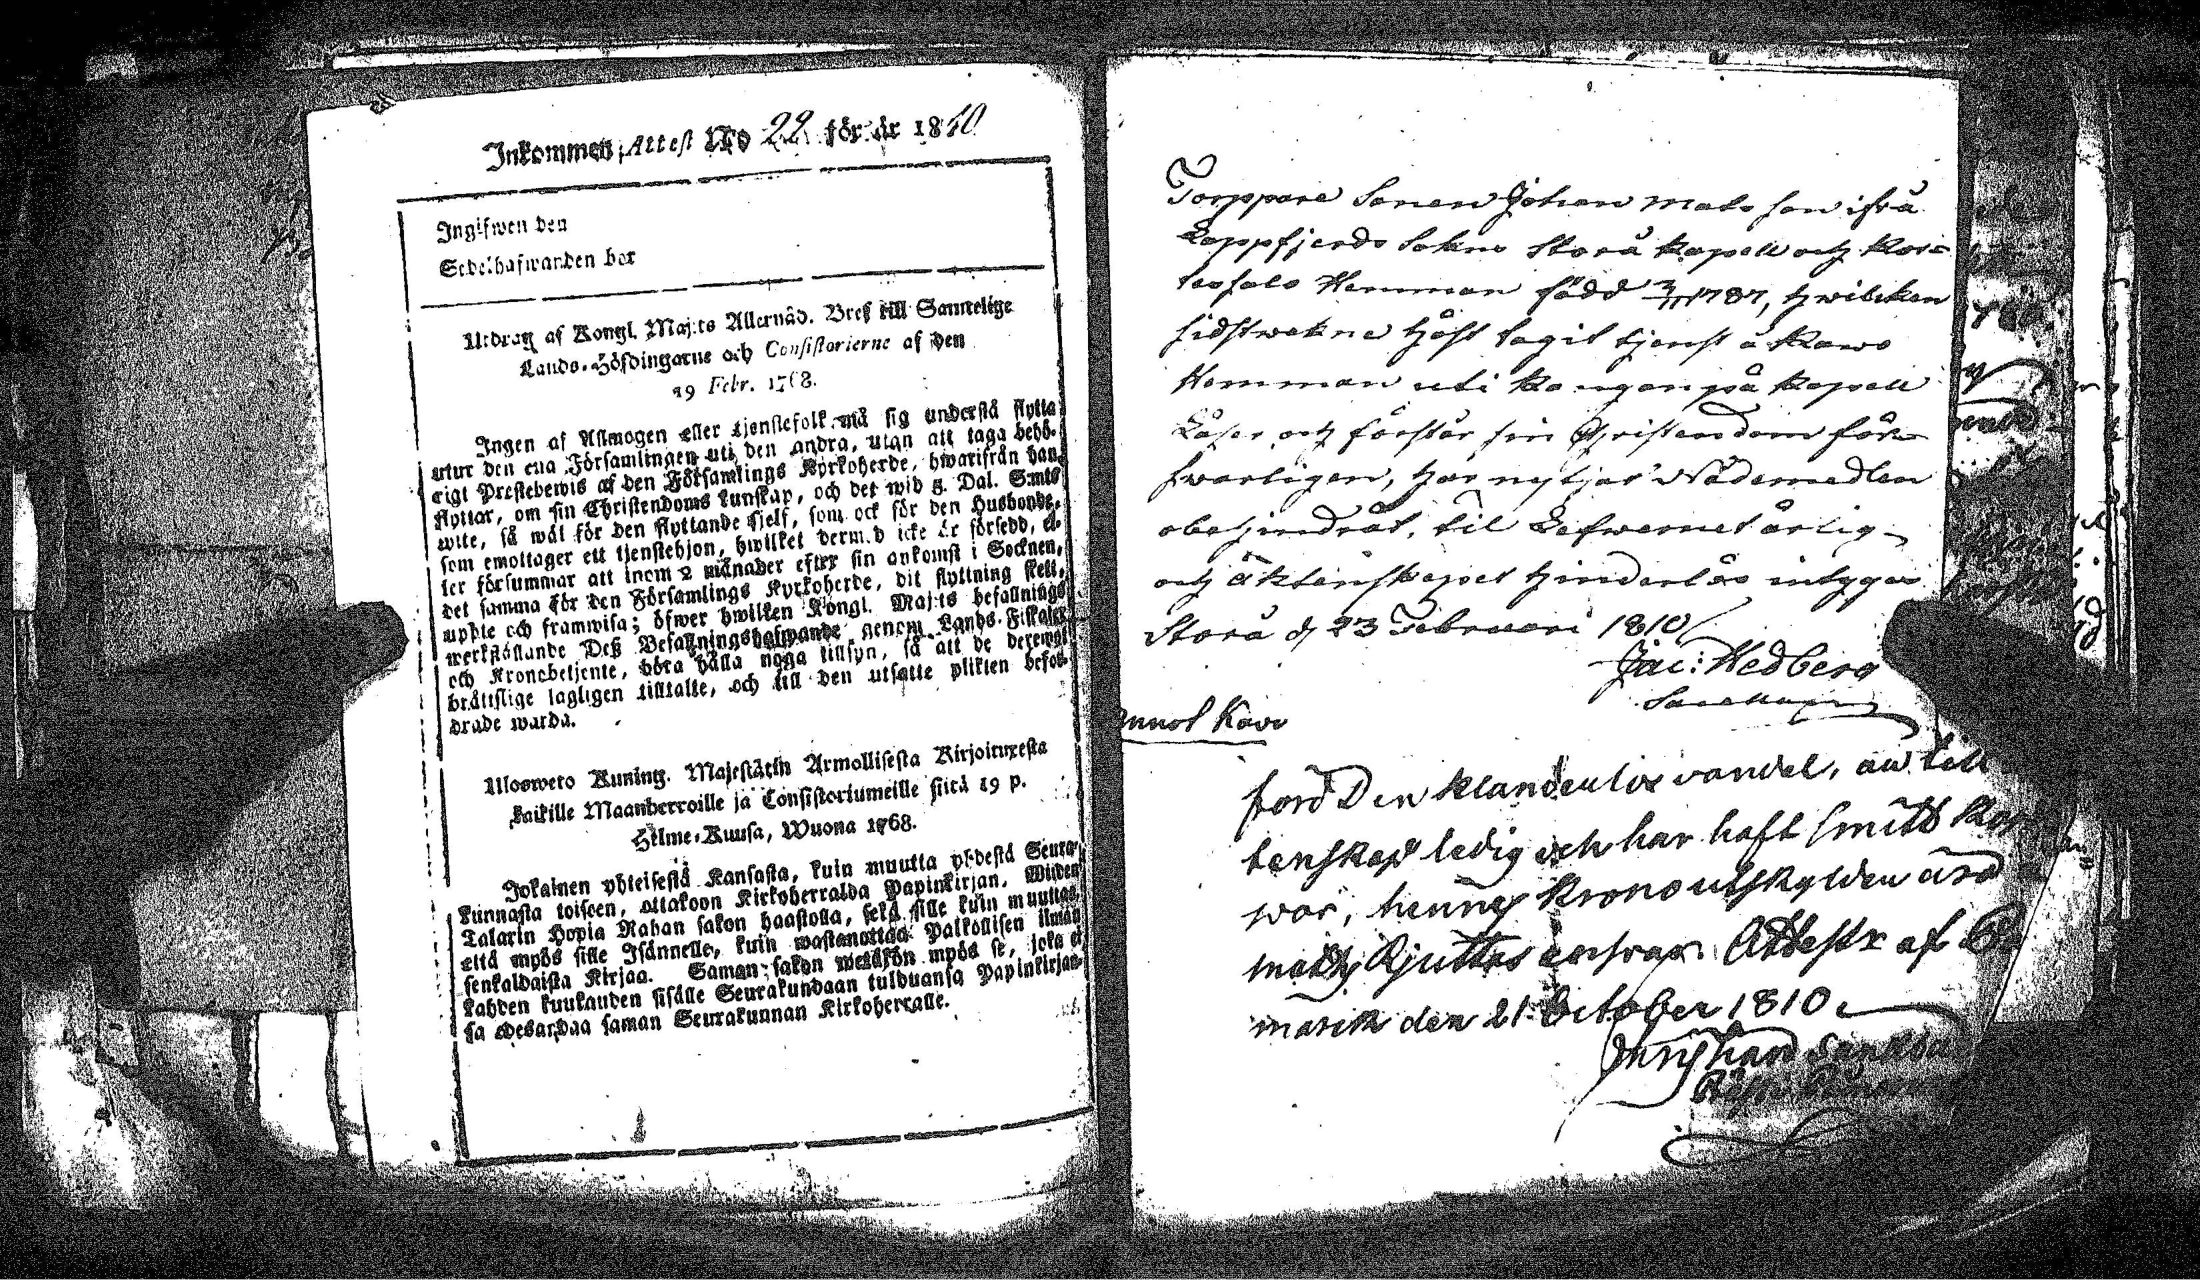 Inkommen Attest No 22 för år 1810
Ingifwen den
Sedelhafwanden bor
Utdrag af Kongl. Maj:ts Allernåd. Bref till Samtelige
Lands-Höfdingarne och Consistorierne af den
19 Febr. 1768.
Ingen af Allmogen eller tjenstefolk må sig understå flytta
utur den ena Församlingen uti den andra, utan att taga behö-
rigt Prestebewis af den Församlings Kyrkoherde, hwarifrån han
flyttar, om sin Christendoms kunskap, och det wid 5. Dal. S:mts
wite, så wäl för den flyttande sjelf, som ock för den Husbonde,
som emottager ett tjenstehjon, hwilket derm.d icke är försedd, el-
ler försummar att inom 2 månader efter sin ankomst i Socknen,
det samma för den Församlings Kyrkoherde, dit flyttning skett,
upte och framwisa; öfwer hwilken Kongl. Maj:ts befallnings
werkställande Deß Befallningshafwande genom Lands-Fiskaler
och Kronobetjente, böra hålla noga tillsyn, så att de deremot
bråttslige lagligen tilltalte, och till den utsatte plikten befor-
drade warda.
Ulosweto Kuning. Majestätin Armollisesta Kirjoituxesta
kaikille Maanherroille ja Consistoriumeille siitä 19 p.
Helme-Kuusa, Wuona 1768.
Jokainen yhteisestä Kansasta, kuin muutta yhdestä Seura-
kunnasta toiseen, ottakoon Kirkoherralda Papinkirjan, Wiiden
Talarin Hopia Rahan sakon haastolla, sekä sille kuin muuttaa,
että myös sille Isännelle, kuin wastanottaa Palkollisen ilman
senkaldaista Kirjaa. Saman sakon wetäkön myös se, joka ei
kahden kuukauden sisälle Seurakundaan tulduansa Papinkirjan-
sa edesandaa saman Seurakunnan Kirkoherralle.
Torppare Sonen Johan Mats son ifrå
Lappfjerds Sokns Storå Kapell och Kors=
teosalo Hemman född 2/11 1787, hwilcken
sidstwekne höst tagit tjenst å Kawo
Hemman uti Kanganpä Kapell
Läser och förstår sin Christendom för-
swarligen, har nyttjat Nådemedlen
obehindrat, til Lefwernet ärlig
och äktenskapet hinderlös intygar
Storå d. 23 Februari 1810
Jac: Hedberg
Sacellan
Kavo
ford Den klanderlös vandel, aw till
tenskap ledig och har haft smitt Kop
wor, hennes Kronoutskylden ärd
Attestr af
mark den 21 October 1810
Christian